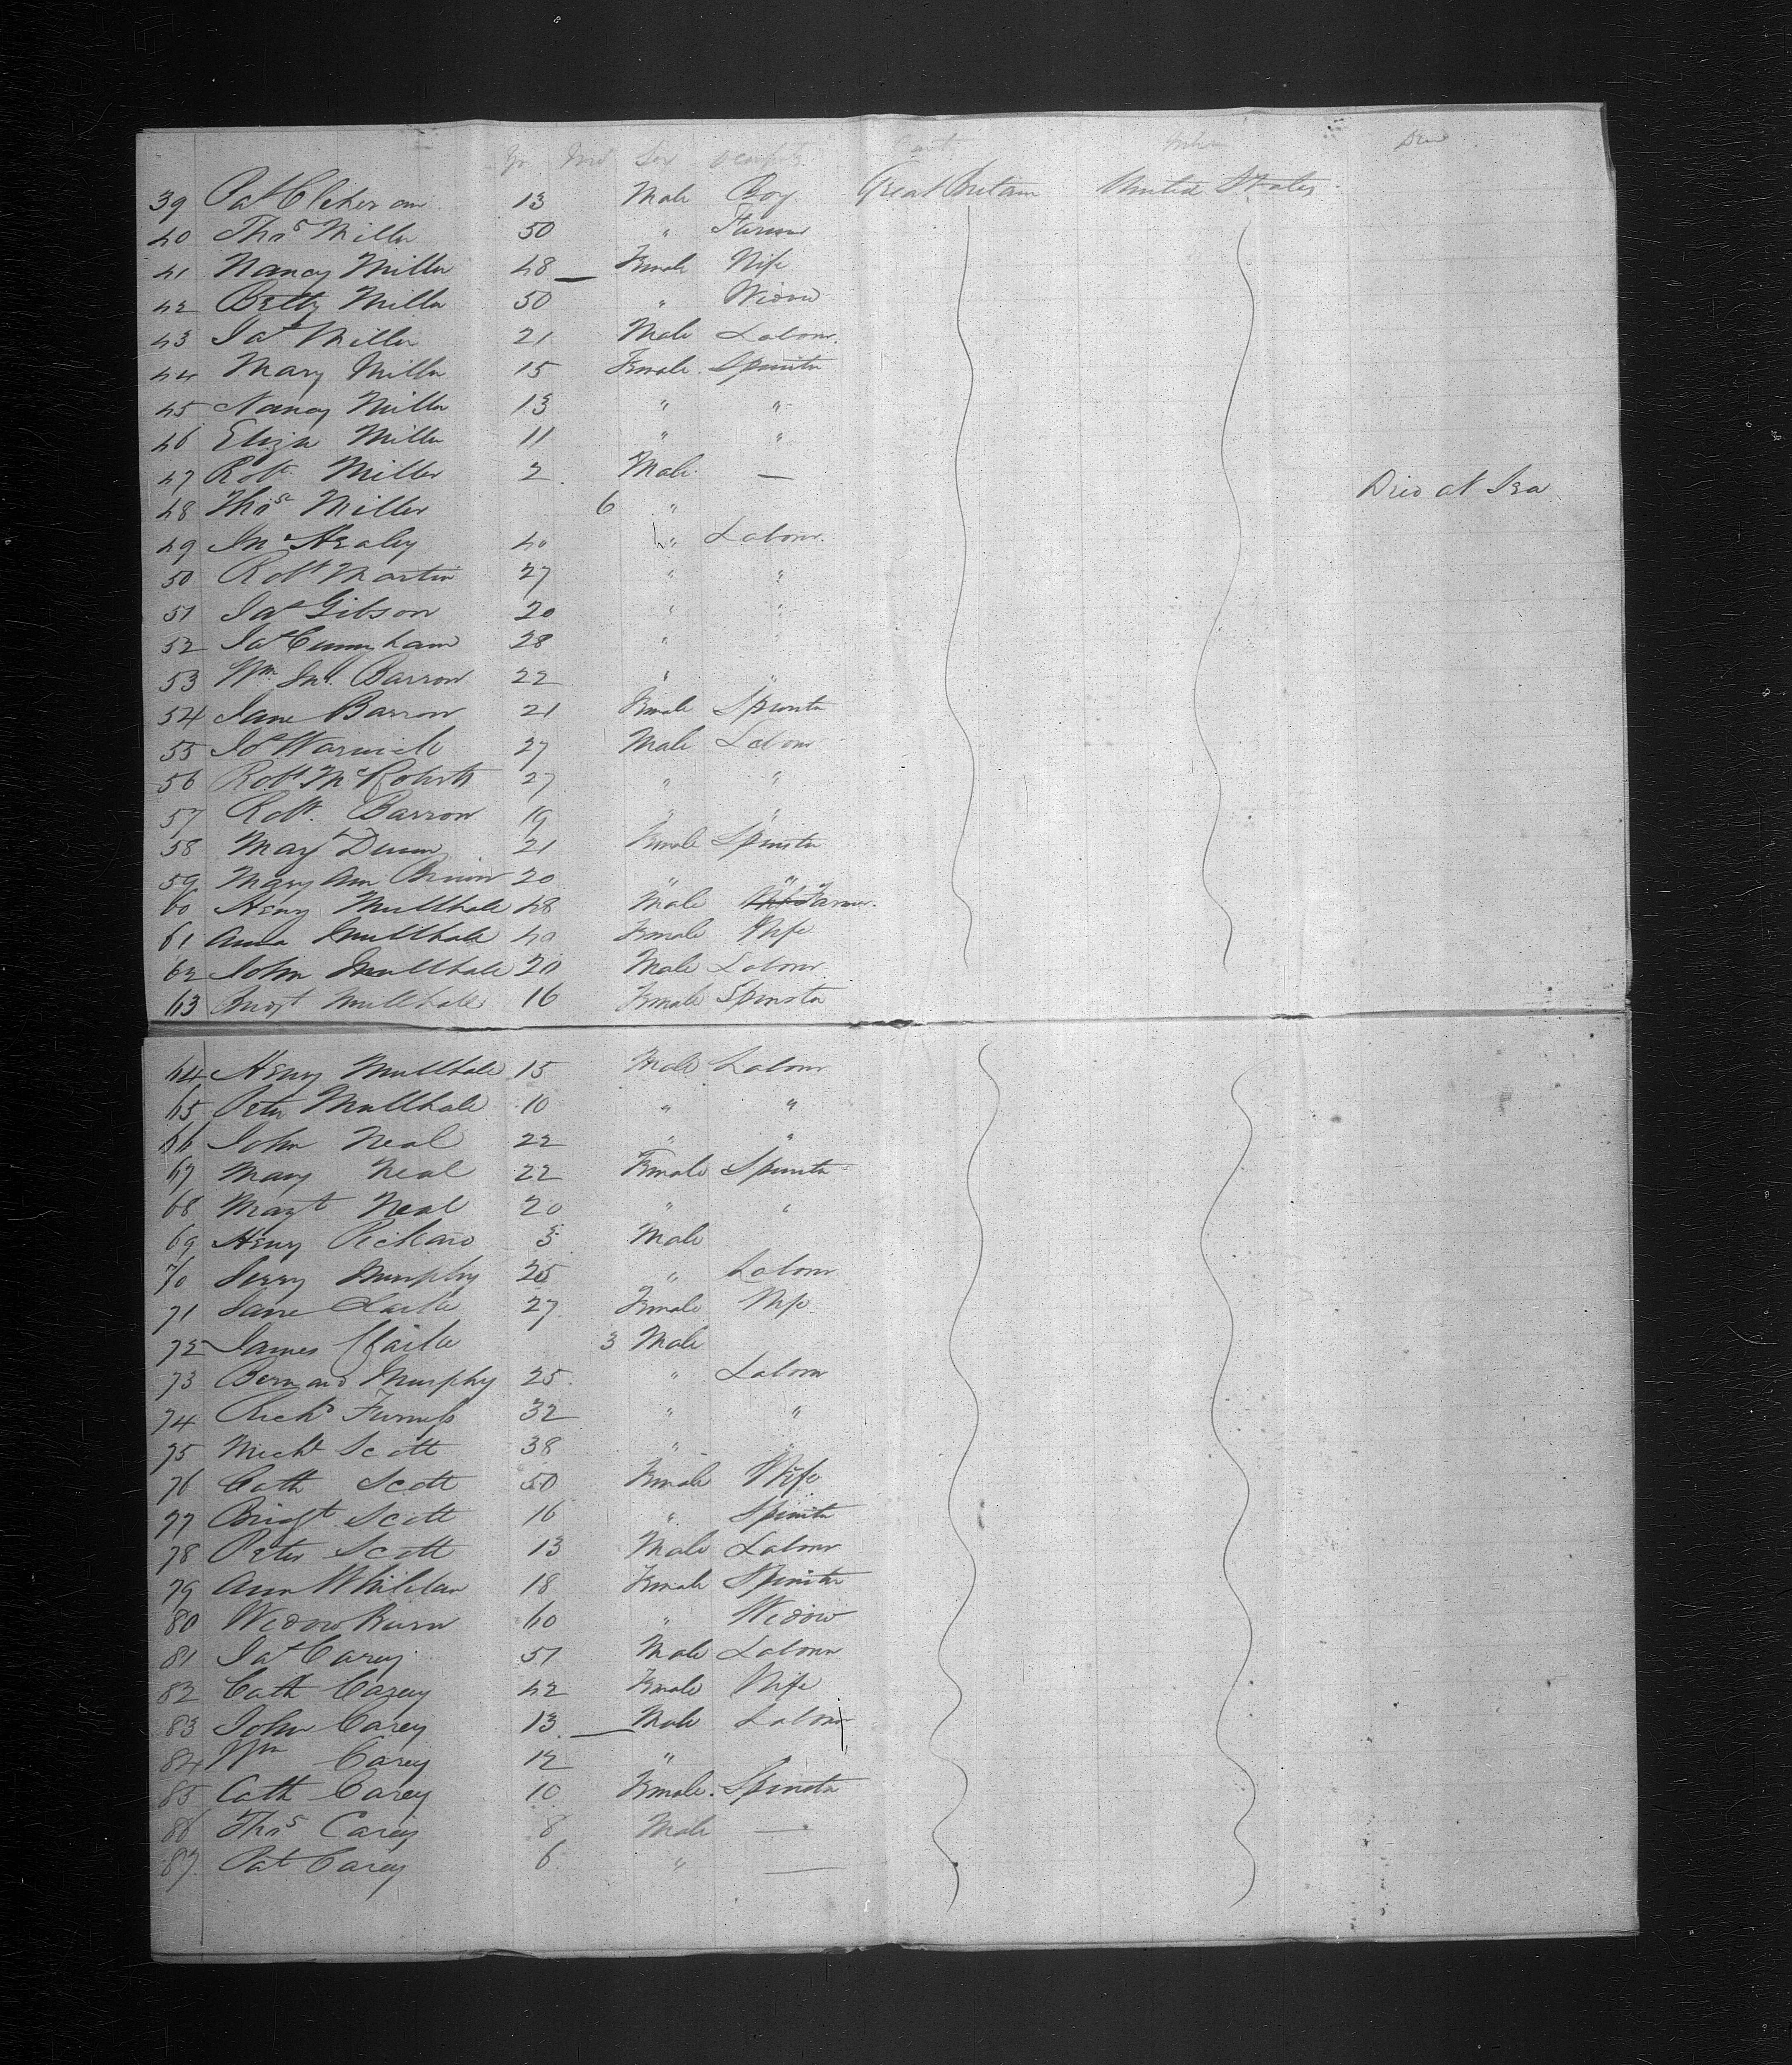 Yr Mo Sex Occupatn
39 Pat 13 Male Boy Great Britain United States
40 Thos Miller 50 " Farmer
41 Nancy Miller 48 — Female Wife
42 Betty Miller 50 " Widow
43 Jas Miller 21 Male Labour.
44 Mary Miller 15 Female Spinster
45 Nancy Miller 13 " "
46 Eliza Miller 11 " "
47 Robt. Miller 2 Male — Died at Sea
48 Thos Miller 6 "
49 Jno Healy 40 " Labour.
50 Robt Martin 27 " "
51 Jas Gibson 20 " "
52 Jas 28 " "
53 Wm Jno. Barron 22 " "
54 Jane Barron 21 Female Spinster
55 Jos Warwick 27 Male Labour
56 Robt McRoberts 27 " "
57 Robt. Barron 19 " "
58 Mary Dunn 21 Female Spinster
59 Mary Ann 20 " "
60 Henry Mullhale 48 Male Farmer.
61 Anna Mullhale 40 Female Wife
62 John Mullhale 20 Male Labour
63 Bridgt Mullhale 16 Female Spinster
64 Henry Mullhale 15 Male Labour
65 Peter Mullhale 10 " "
66 John Neal 22 " "
67 Mary Neal 22 Female Spinster
68 Margt Neal 20 " "
69 Henry Richard 5 Male
70 Jerry Murphy 25 " Labour
71 Jane 27 Female Wife
72 James 3 Male
73 Bernard Murphy 25 " Labour
74 Richd Furness 32 " "
75 Michl Scott 38 " "
76 Cath Scott 50 Female Wife
77 Bridgt Scott 16 " Spinster
78 Peter Scott 13 Male Labour
79 Ann 18 Female Spinster
80 Widow Burn 60 " Widow
81 Jas Carey 51 Male Labour
82 Cath Carey 42 Female Wife
83 John Carey 13 — Male Labour
84 Wm Carey 12 "
85 Cath Carey 10 Female Spinster
86 Thos Carey 8 Male —
87 Pat Carey 6 " —